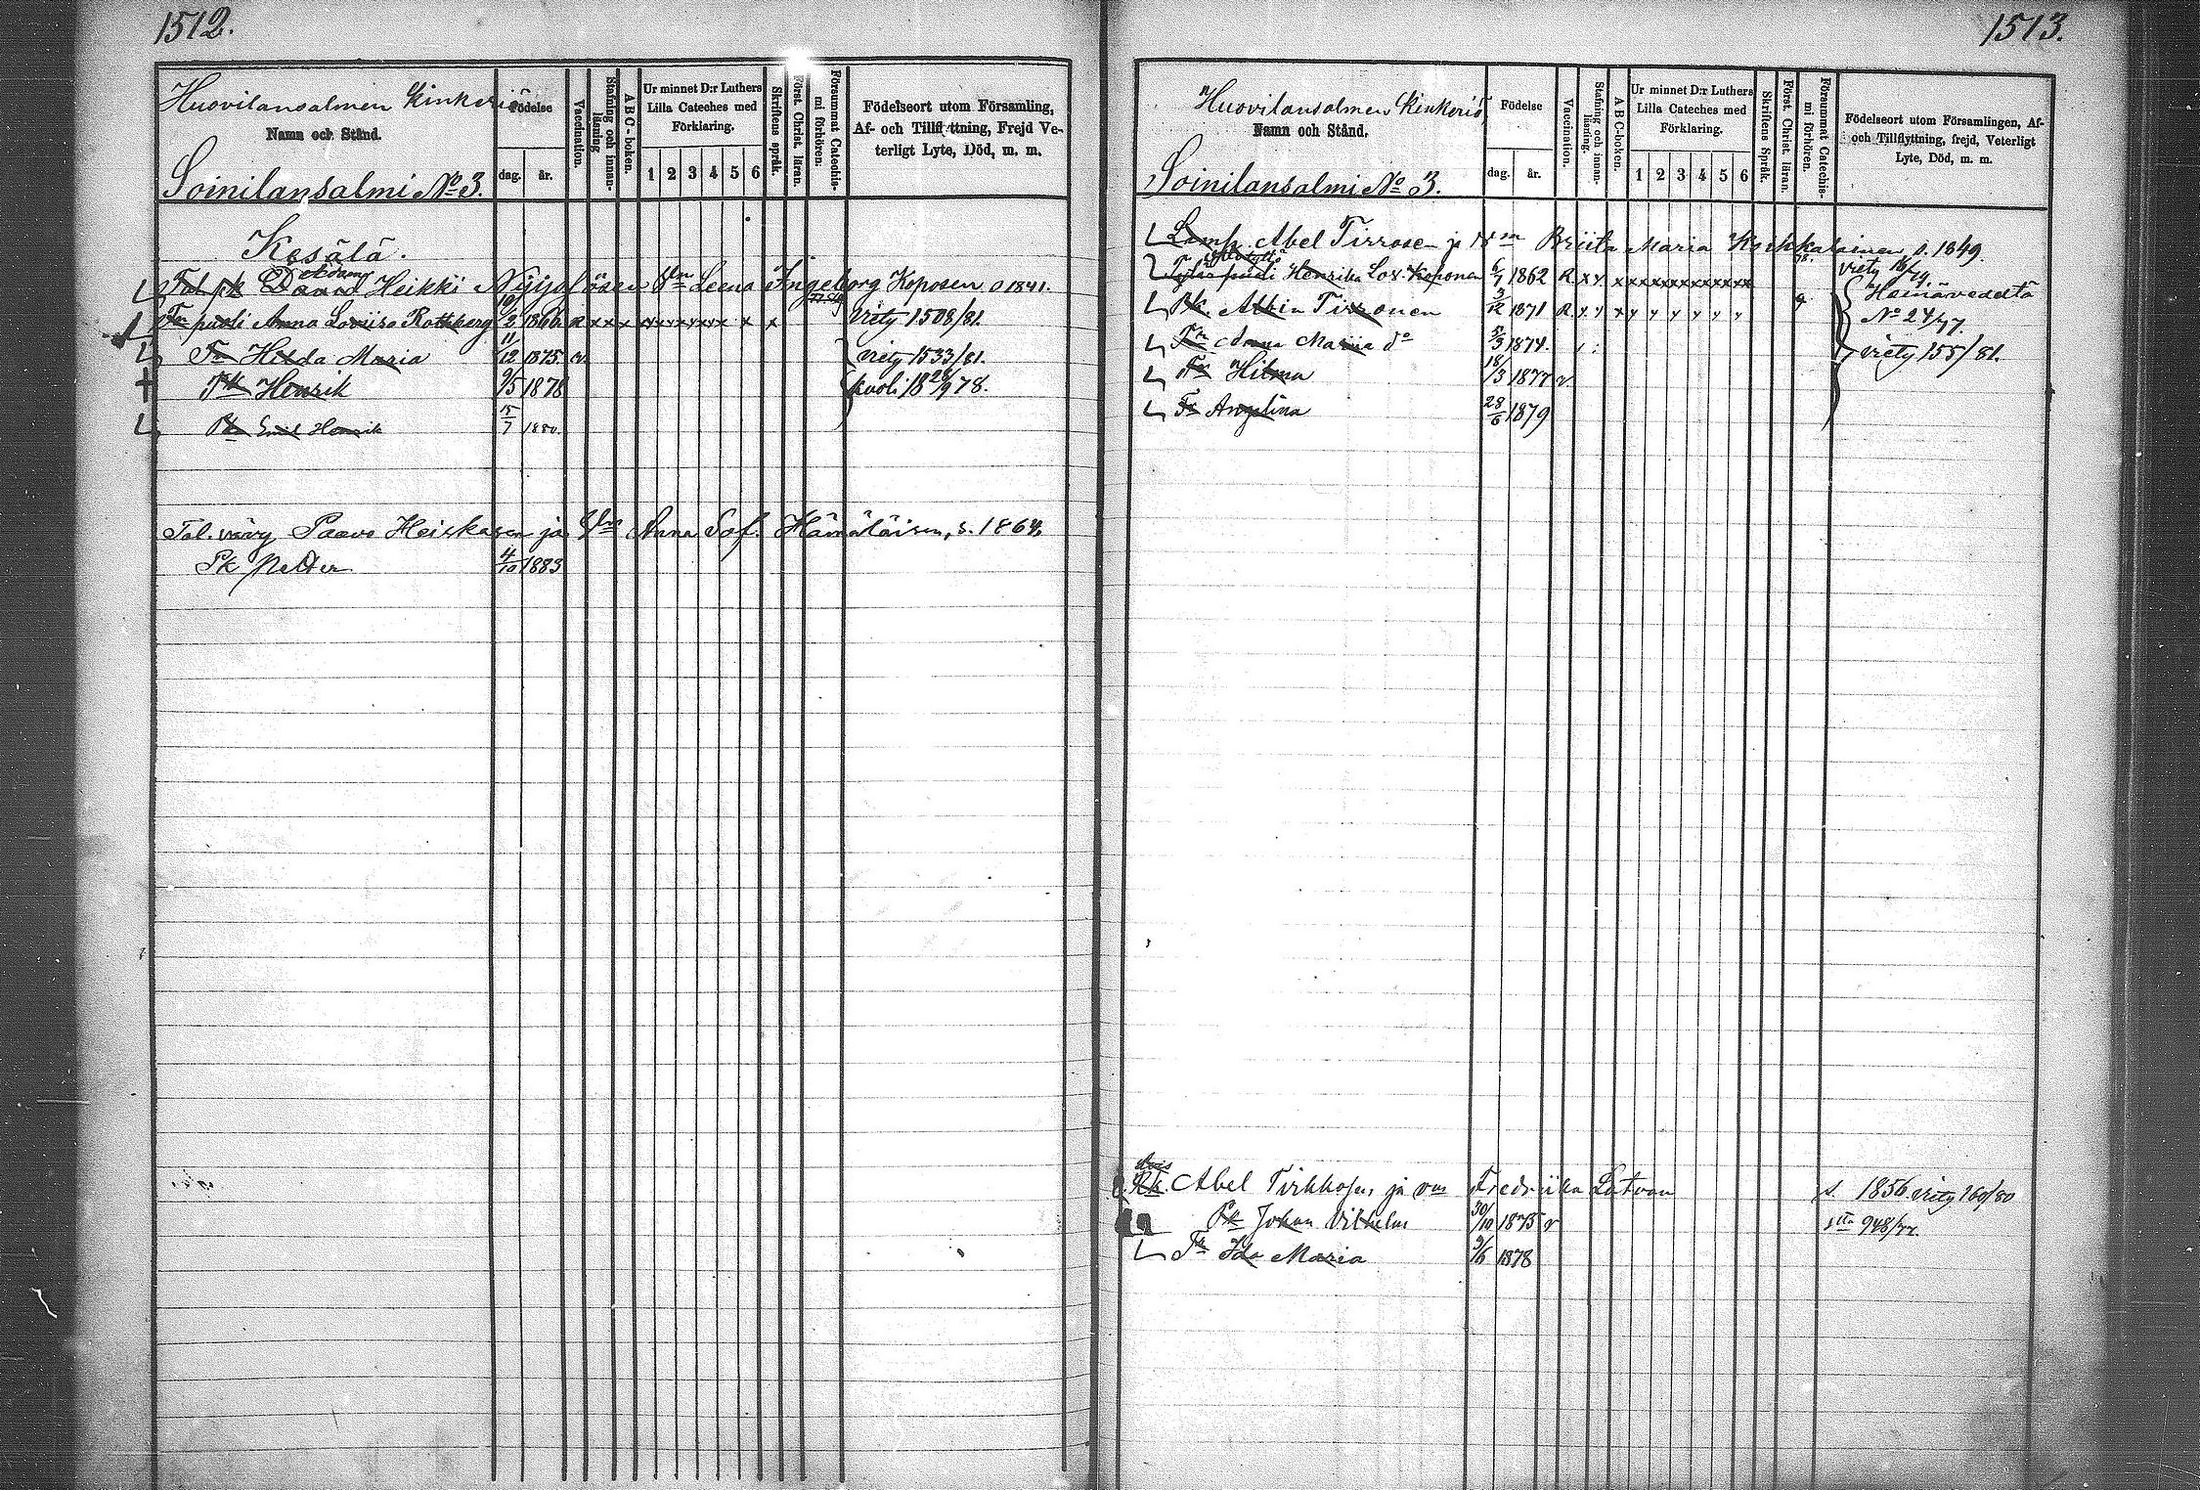 1512.
Huovilansalmen Kinkeriä
Namn och Stånd.
Soinilansalmi No 3.
Födelse
dag. år.
Vaccination.
Stafning och innanläsning
ABC-boken.
Ur minnet D:r Luthers Lilla Cateches med Förklaring.
1 2 3 4 5 6
Skriftens språk.
Först. Christ. läran.
Försummat Catechismi förhören:
Födelseort utom Församling, Af- och Tillflyttning, Frejd Veterligt Lyte, Död, m. m.
Kesälä.
Adam
Heikki Leena Ingeborg Koposen 1841.
puoli Anna Loviisa Rothberg 10/2 1866 R x x x x x x x x x x x Viety 1508/81.
Tr Hilda Maria 11/12 1875 viety 1533/81.
Pk Henrik 9/5 1878 kuoli 18 28/9 78.
Pk Emil Henrik 15/7 1880.
Tal. vävy Paavo Heiskasen ja Vmo Anna Sof. Hämäläisen, s. 1864.
Pk Petter 4/10 1883
1513.
Huovilansalmen Kinkeriä
Namn och Stånd,
Soinilansalmi No 3.
Födelse
dag. år.
Vaccination.
Stafning och innanläsning.
ABC-boken.
Ur minnet D:r Luthers Lilla Cateches med Förklaring.
1 2 3 4 5 6
Skriftens Språk.
Först Christ. läran.
Försummat Catechismi förhören.
Födelseort utom Församlingen, Af- och Tillflyttning, frejd, Veterligt Lyte, Död, m. m.
Abel Tirrosen ja Briita Maria s. 1849.
puoli Henrika Lov. Koponen 6/7 1862 R x x x x x x x x x x viety
Pk. Albin Tirronen 3/12 1871 R Heinävedeltä No 24/77.
Tr Anna Maria do 1874. viety 155/81.
Tr Hilma 18/3 1877
Tr Angelina 28/6 1879
Abel Tirkkosen ja vmo Fredriika Latvan s. 1856. viety 260/80
Pk Johan Vilhelm 30/10 1875 v 948/77.
Tr Ida Maria 9/6 1878